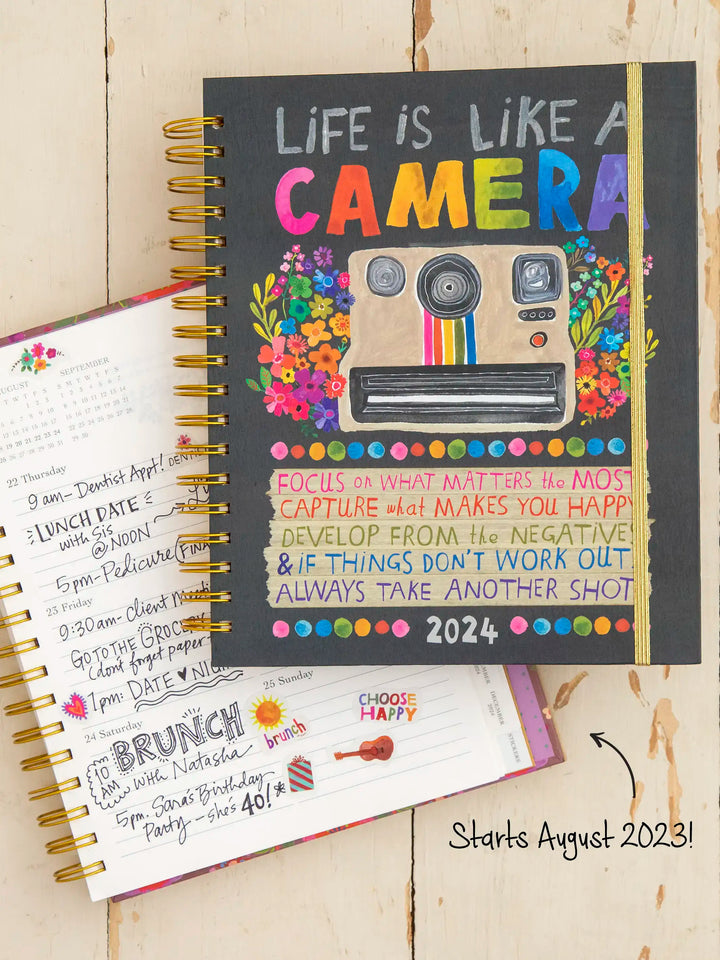 LiFE iS LiKE A
CAMERA
FOCUS on WHAT MATTERS the MOST
CAPTURE what MAKES YOU HAPPY
DEVELOP FROM the NEGATIVES
& iF THINGS DON'T WORK OUT
ALWAYS TAKE ANOTHER SHOT
2024
AUGUST
SEPTEMBER
S M T W T F S
22 Thursday
9am- Dentist Appt!
LUNCH DATE
with Sis
@NOON
5pm-Pedicure
23 Friday
9:30am- Client
GO TO THE GROCERY
(don't forget paper
7pm: DATE NIGHT
24 Saturday
25 Sunday
10
AM
BRUNCH
with Natasha
5pm. Sara's Birthday
Party - she's 40!*
brunch
CHOOSE
HAPPY
DECEMBER
2024
STICKERS
Starts August 2023!